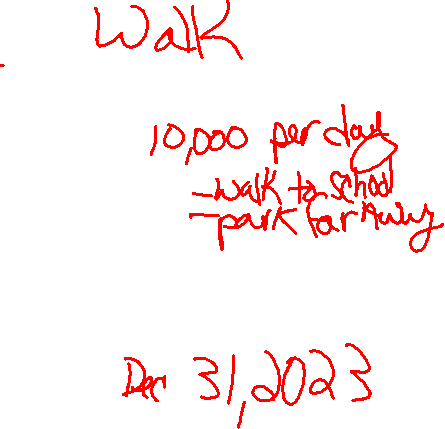 Walk
10,000 per day
-walk to school
-park far away
Dec 31, 2023